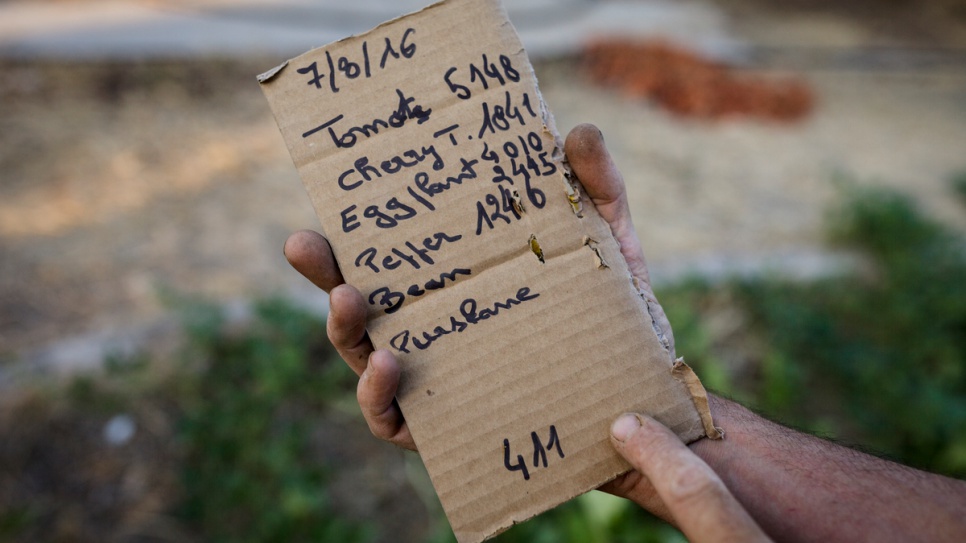 7/8/16
Tomato 5148
Cherry T. 1841
Eggplant 4010
Pepper 1246
Bean
Purslane
411